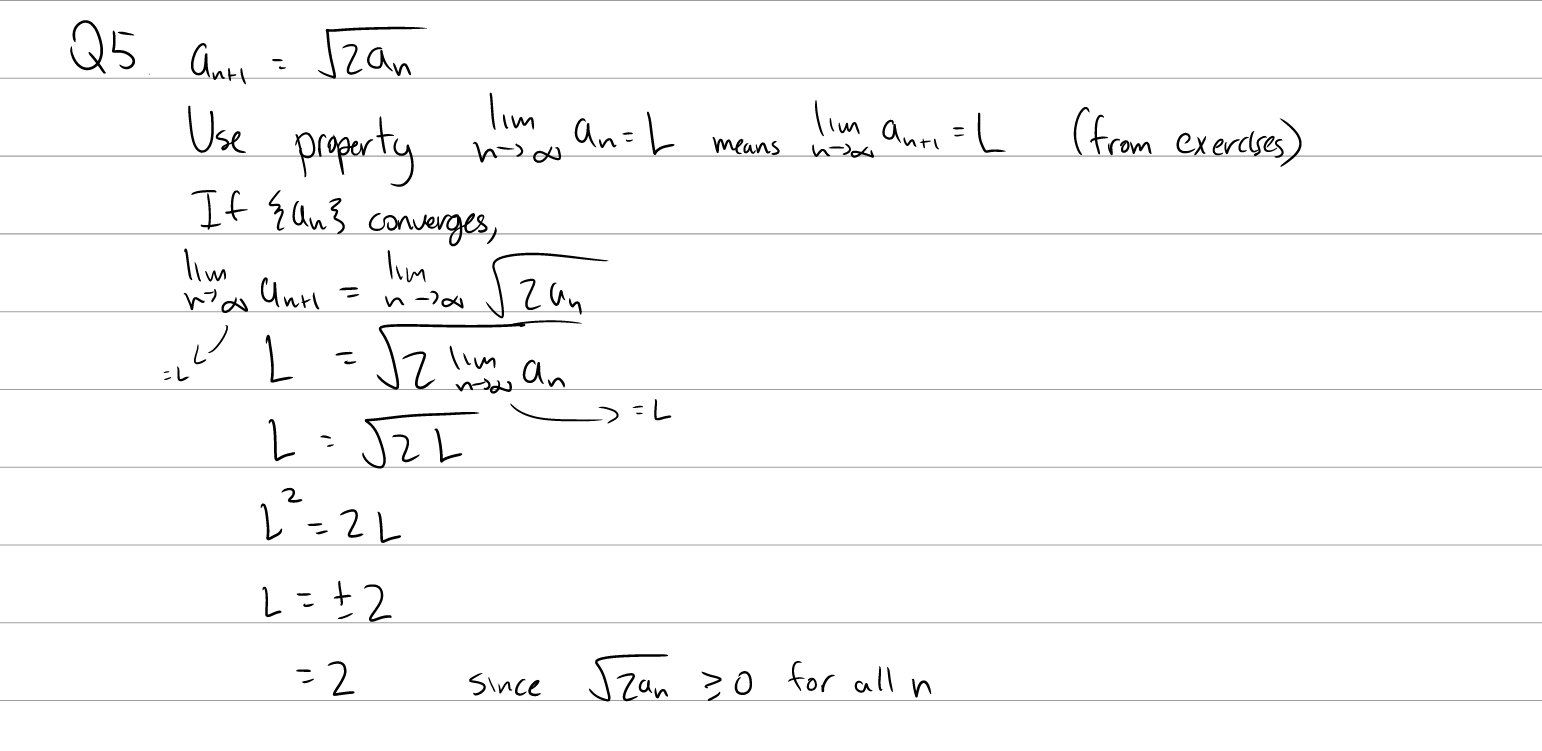 Q5 aₙ₊₁ = √(2aₙ)
Use property lim n→∞ aₙ = L means lim n→∞ aₙ₊₁ = L (from exercises)
If {aₙ} converges,
lim n→∞ aₙ₊₁ = lim n→∞ √(2aₙ)
=L L = √(2 lim n→∞ aₙ)
→ =L
L = √(2L)
L² = 2L
L = ±2
= 2 since √(2aₙ) ≥ 0 for all n